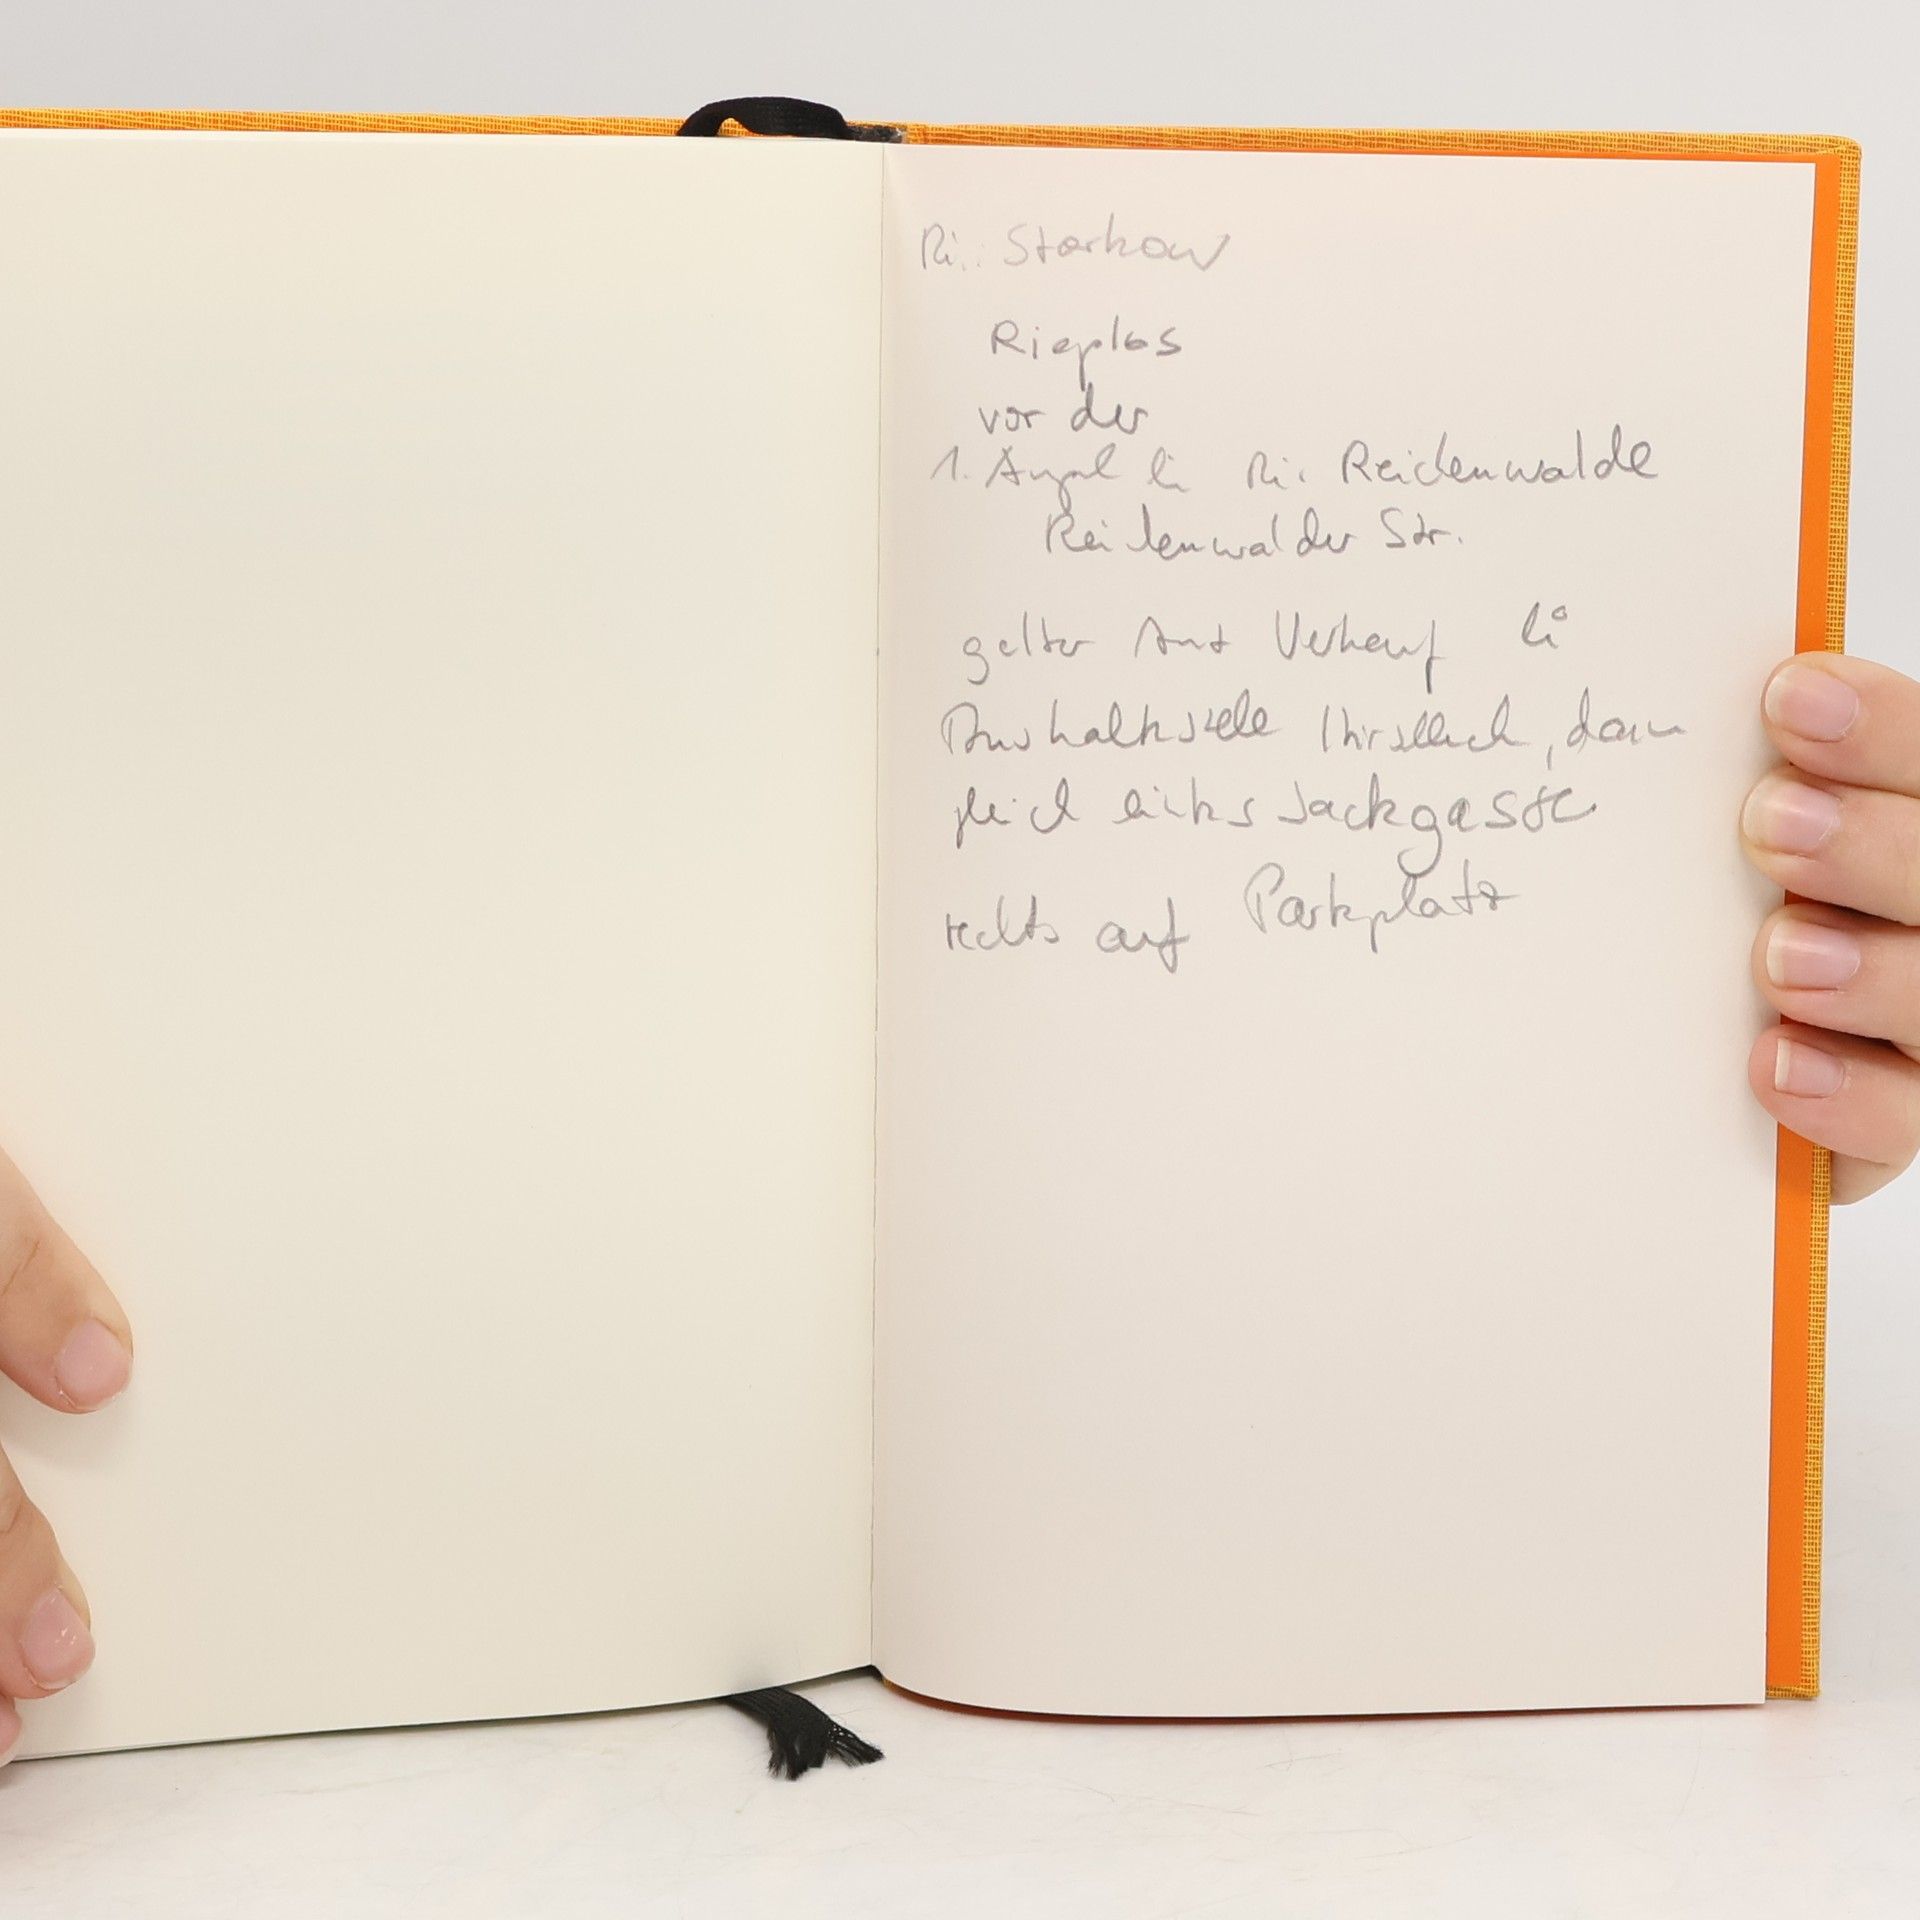 Ri.: Storkow
Rieplos
vor der
1. Ampel li Ri. Reichenwalde
Reichenwalder Str.
gelber Verkauf li
Bushaltestelle, dann
gleich links Sackgasse
rechts auf Parkplatz